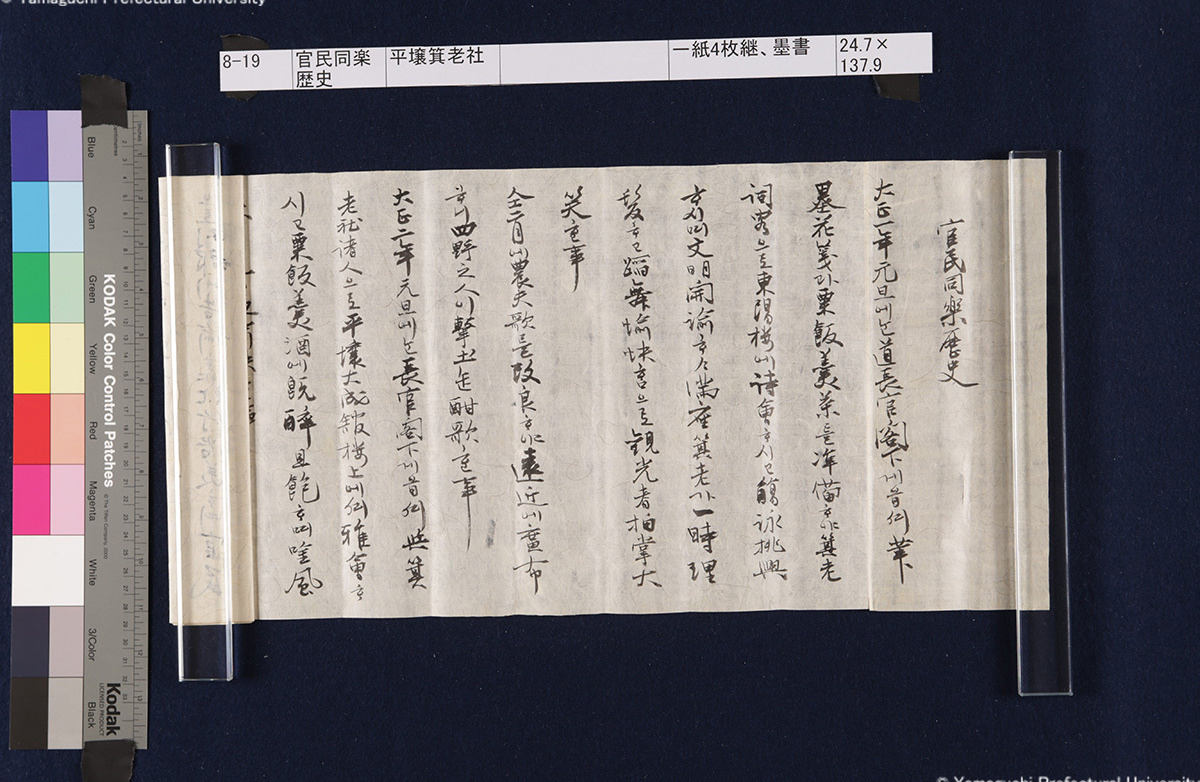 © Yamaguchi Prefectural University
8-19
官民同楽
歴史
平壌箕老社
一紙4枚継、墨書
24.7×
137.9
官民同樂歷史
大正一年元旦에と道長官閣下게셔筆
墨花箋과粟飯羹茶를準備하야箕老
詞客으로東陽樓에詩會하시고觴詠挑興
하시며文明開諭하々滿座箕老가一時理
髮하고蹈舞愉快홈으로觀光者拍掌大
笑한事
仝二月에農夫歌를改良하야遠近에廣布
하니四野之人이擊土缶酣歌한事
大正二年元旦에と長官閣下게셔與箕
老社諸人으로平壤大成館樓上에셔雅會하
시고粟飯羹酒에旣醉且飽하며唫風
Blue
Cyan
Green
Yellow
Red
Magenta
White
3/Color
Black
KODAK Color Control Patches
© The Tiffen Company, 2000
Kodak
LICENSED PRODUCT
© Yamaguchi Prefectural University